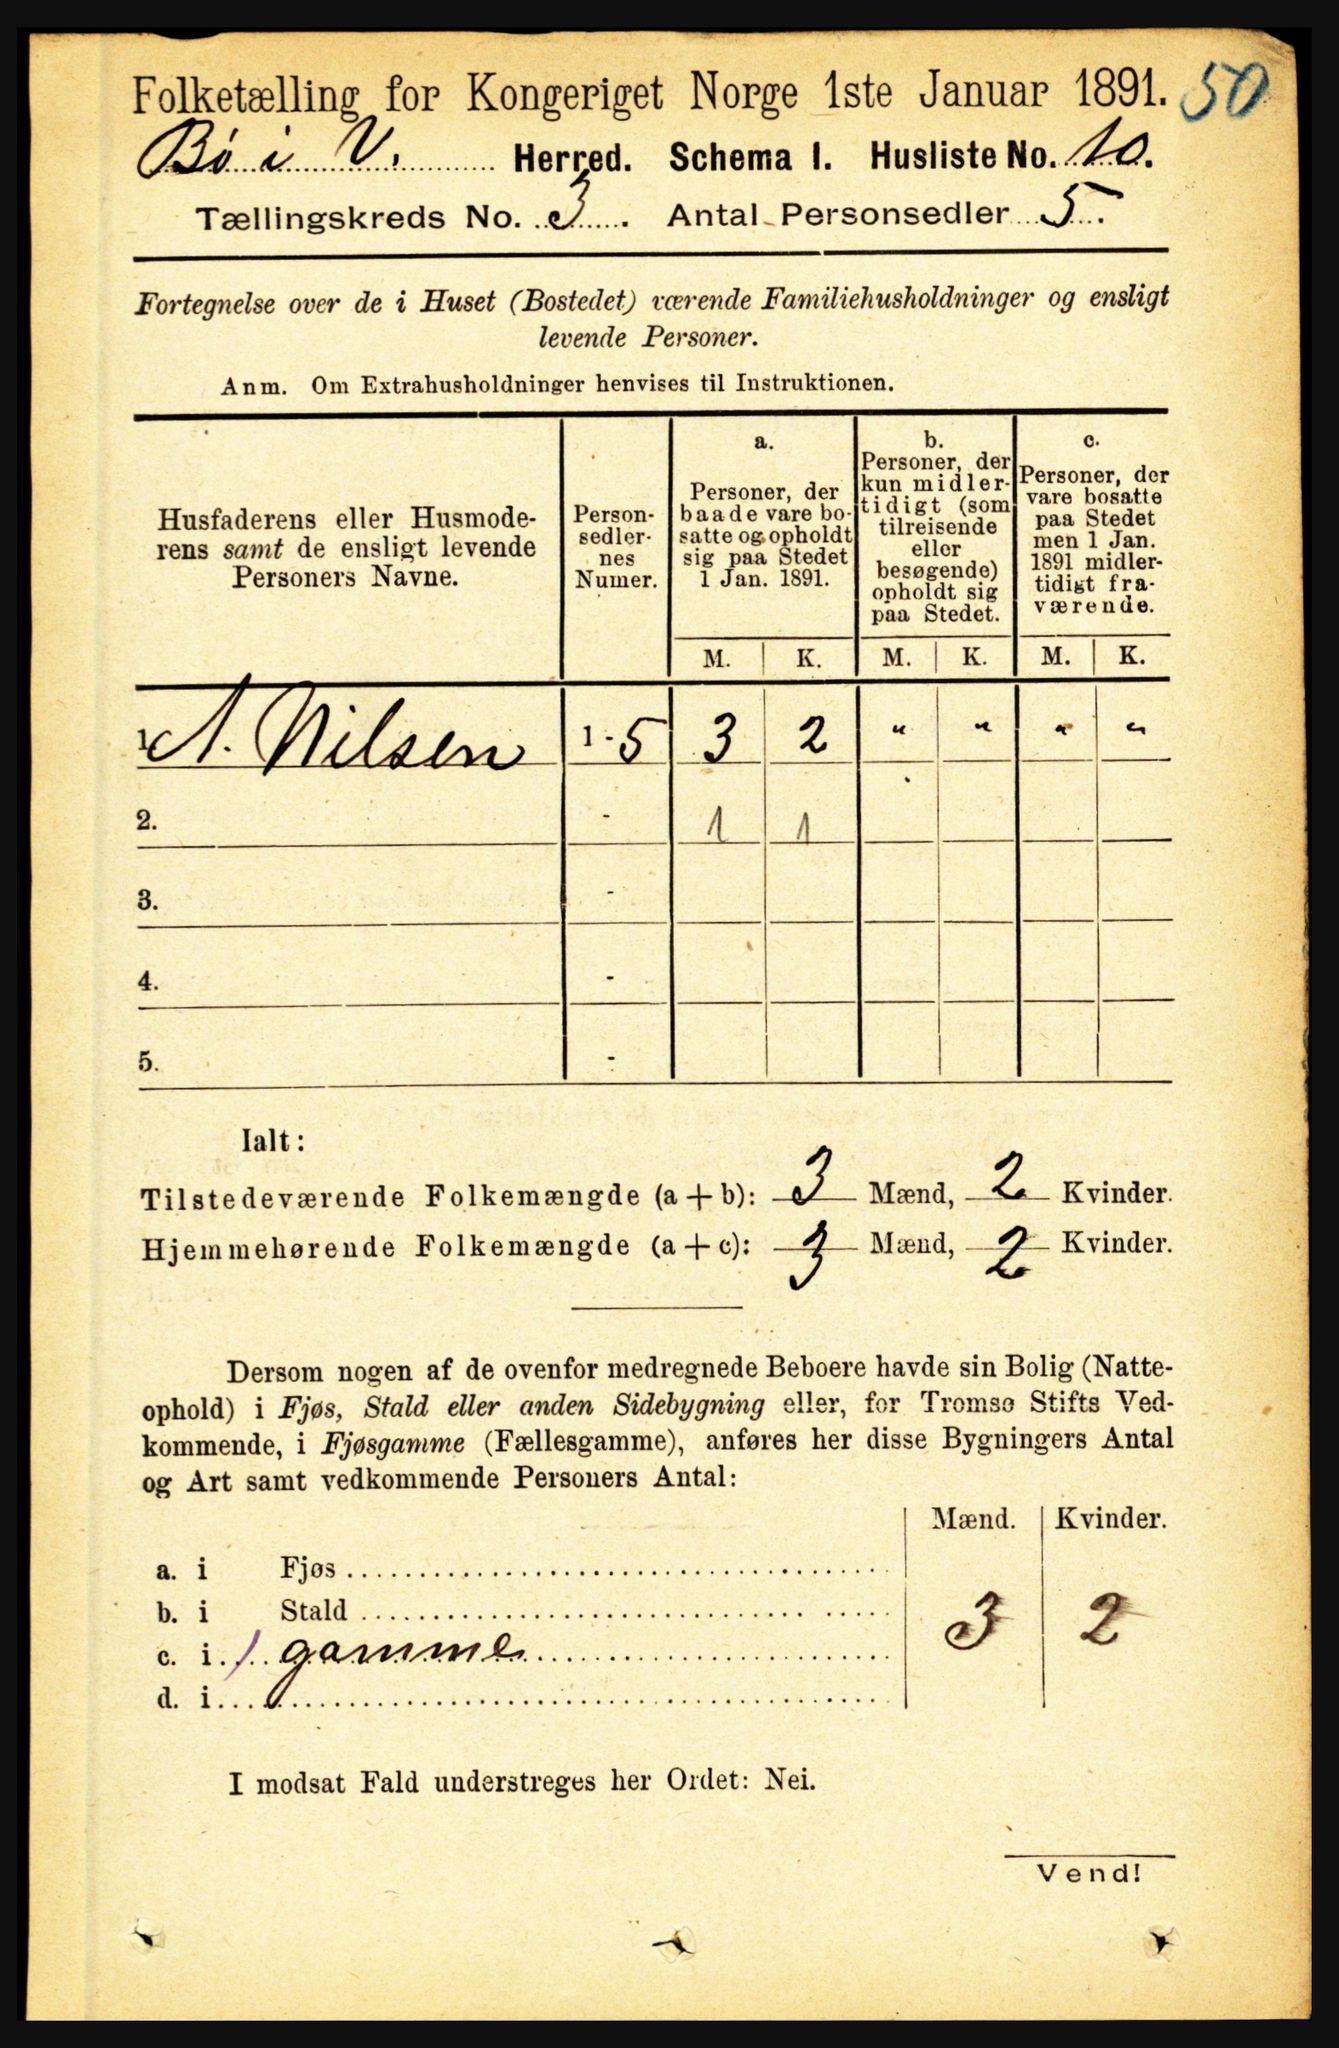 Folketælling for Kongeriget Norge 1ste Januar 1891. 50
Bø i V. Herred. Schema I. Husliste No. 10.
Tællingskreds No. 3. Antal Personsedler 5.
Fortegnelse over de i Huset (Bostedet) værende Familiehusholdninger og ensligt
levende Personer.
Anm. Om Extrahusholdninger henvises til Instruktionen.
Husfaderens eller Husmode-
rens samt de ensligt levende
Personers Navne.
Person-
sedler-
nes
Numer.
a.
Personer, der
baade vare bo-
satte og opholdt
sig paa Stedet
1 Jan. 1891.
b.
Personer, der
kun midler-
tidigt (som
tilreisende
eller
besøgende)
opholdt sig
paa Stedet.
c.
Personer, der
vare bosatte
paa Stedet
men 1 Jan.
1891 midler-
tidigt fra-
værende.
M. K. M. K. M. K.
1. A. Nilsen 1 - 5 3 2 " " " "
2. - 1 1
3. -
4. -
5. -
Ialt:
Tilstedeværende Folkemængde (a + b): 3 Mænd, 2 Kvinder.
Hjemmehørende Folkemængde (a + c): 3 Mænd, 2 Kvinder.
Dersom nogen af de ovenfor medregnede Beboere havde sin Bolig (Natte-
ophold) i Fjøs, Stald eller anden Sidebygning eller, for Tromsø Stifts Ved-
kommende, i Fjøsgamme (Fællesgamme), anføres her disse Bygningers Antal
og Art samt vedkommende Personers Antal:
Mænd. Kvinder.
a. i Fjøs
b. i Stald 3 2
c. i 1 gamme
d. i
I modsat Fald understreges her Ordet: Nei.
Vend!